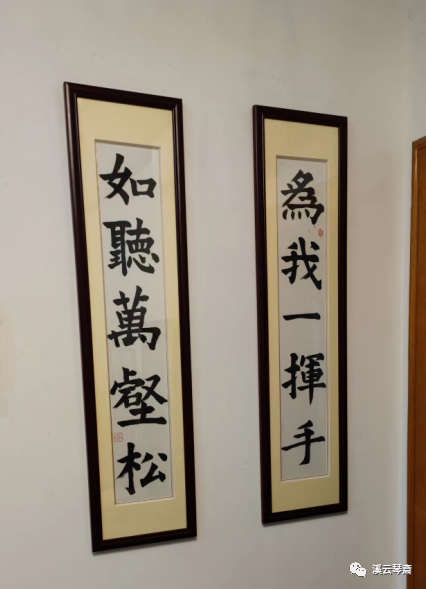 為我一揮手
如聽萬壑松
溪云琴斋